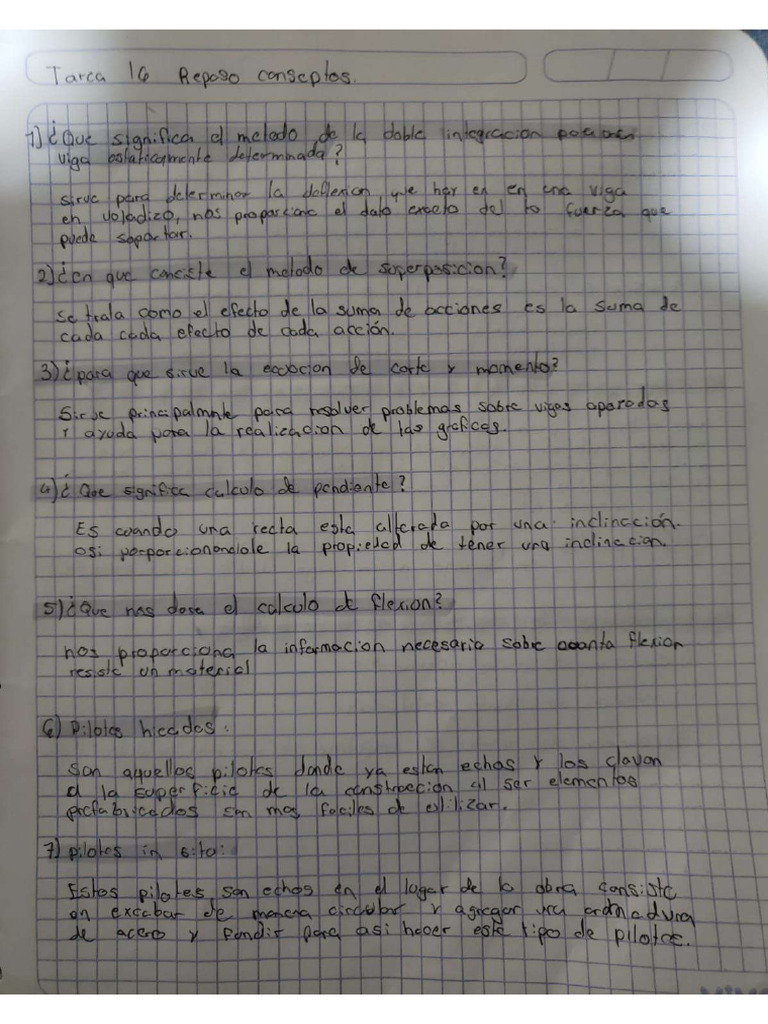 Tarea 16 Repaso conseptos.
1) ¿Que significa el metodo de la doble integracion para una
viga estaticamente determinada?
sirve para determinar la deflexion que hay en en una viga
en voladizo, nos proporciona el dato exacto del la fuerza que
puede soportar.
2) ¿En que conciste el metodo de superposicion?
se trata como el efecto de la suma de acciones es la suma de
cada cada efecto de cada acción.
3) ¿para que sirve la ecuacion de corte y momento?
Sirve principalmnte para resolver problemas sobre vigas aporadas
y ayuda para la realizacion de las graficas.
4) ¿Que significa calculo de pendiente?
Es cuando una recta esta alterada por una inclinacción.
asi porporcionandole la propiedad de tener una inclinacion.
5) ¿Que nos dara el calculo de flexion?
nos proporciona la informacion necesaria sobre cuanta flexion
resiste un material
6) Pilotes hicados:
son aquellos pilotes donde ya estan echos y los clavan
a la superficie de la construccion al ser elementos
prefabricados son mas faciles de utilizar.
7) pilotes in situ:
Estos pilotes son echos en el lugar de la obra consiste
en excabar de manera circular y agregar una armadura
de acero y fundir para asi hacer este tipo de pilotes.